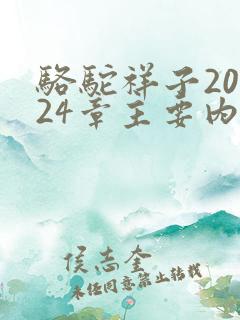 駱駝祥子20
24章主要内
侯志奎
未经同意禁止转载